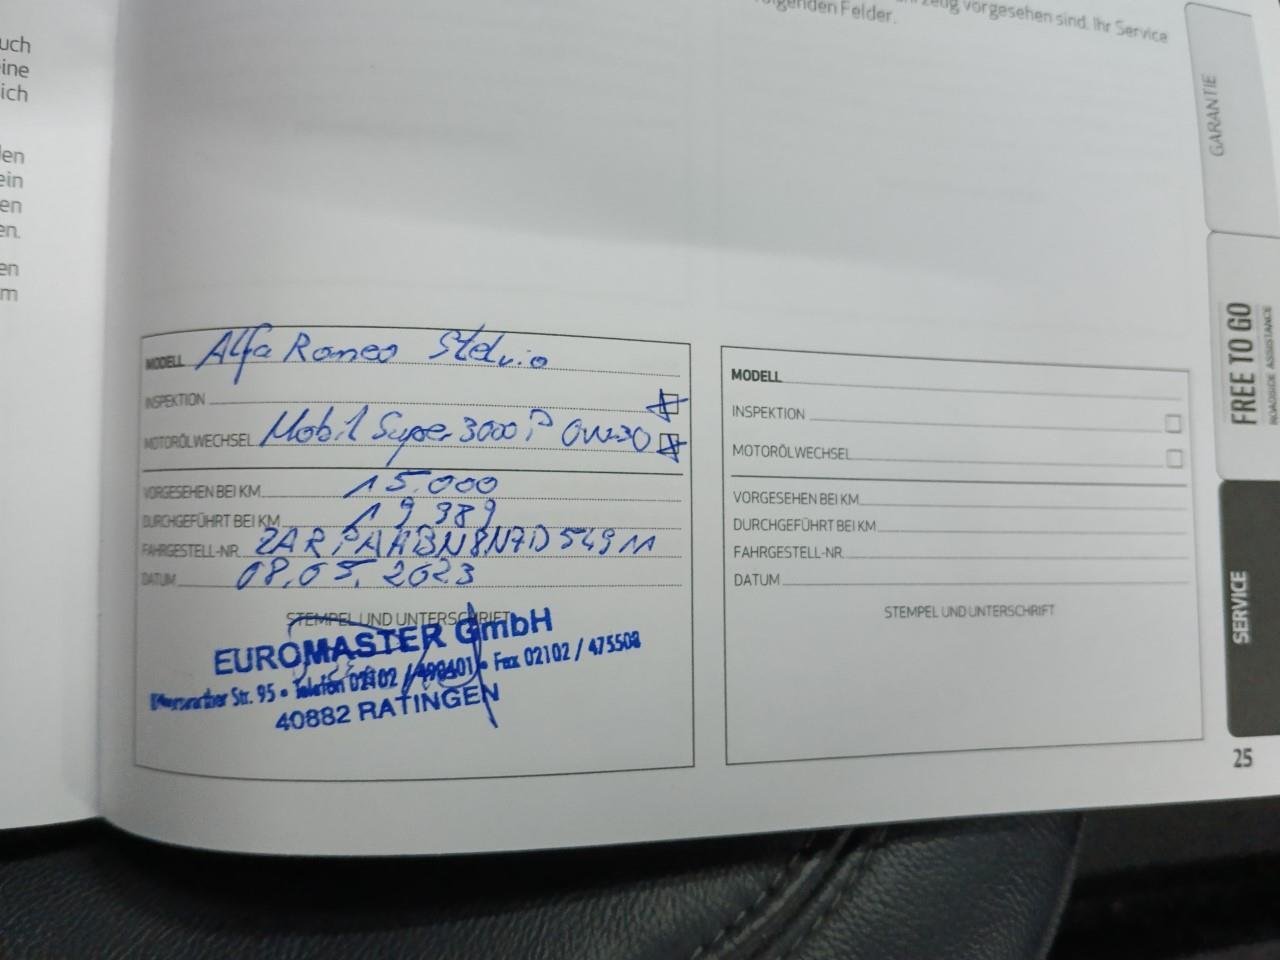 uch
eine
ich
len
ein
en
en.
en
m
vorgesehen sind. Ihr Service
folgenden Felder.
GARANTIE
FREE TO GO
ROADSIDE ASSISTANCE
SERVICE
25
MODELL Alfa Romeo Stelvio
INSPEKTION
MOTORÖLWECHSEL Mobil Super 3000 P 0W-30
VORGESEHEN BEI KM 15.000
DURCHGEFÜHRT BEI KM 19 989
FAHRGESTELL-NR. ZARPAHBN8N7D54911
DATUM 08.05.2023
STEMPEL UND UNTERSCHRIFT
EUROMASTER GmbH
Str. 95 • Telefon 02102 / • Fax 02102 / 475508
40882 RATINGEN
MODELL
INSPEKTION
MOTORÖLWECHSEL
VORGESEHEN BEI KM
DURCHGEFÜHRT BEI KM
FAHRGESTELL-NR.
DATUM
STEMPEL UND UNTERSCHRIFT